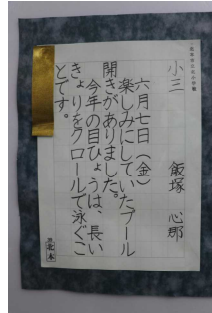 小三　飯塚　心那
六月七日（金）
楽しみにしていたプール
開きがありました。
今年の目ひょうは、長い
きょりをクロールで泳ぐこ
とです。
北本